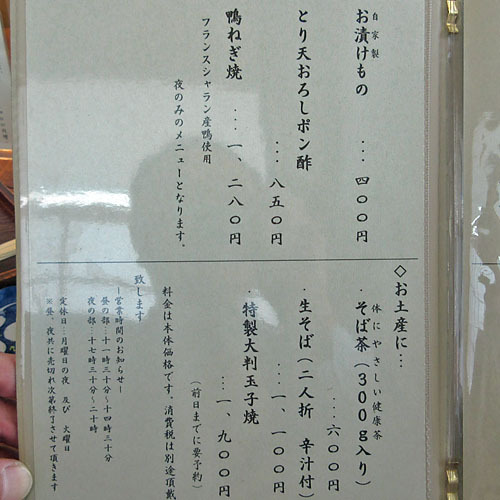 自家製
お漬けもの ... 四〇〇円
とり天おろしポン酢 ... 八五〇円
鴨ねぎ焼 ... 一、二八〇円
フランスシャラン産鴨使用
夜のみのメニューとなります。
◇お土産に…
体にやさしい健康茶
・そば茶(300g入り) ...六〇〇円
・生そば(二人折 辛汁付) ...一、一〇〇円
・特製大判玉子焼 ...一、九〇〇円
(前日までに要予約)
料金は本体価格です。消費税は別途頂戴
致します
ー営業時間のお知らせー
昼の部…十一時三十分~十四時三十分
夜の部…十七時三十分~二十時
定休日…月曜日の夜 及び 火曜日
※昼、夜共に売切れ次第終了させて頂きます